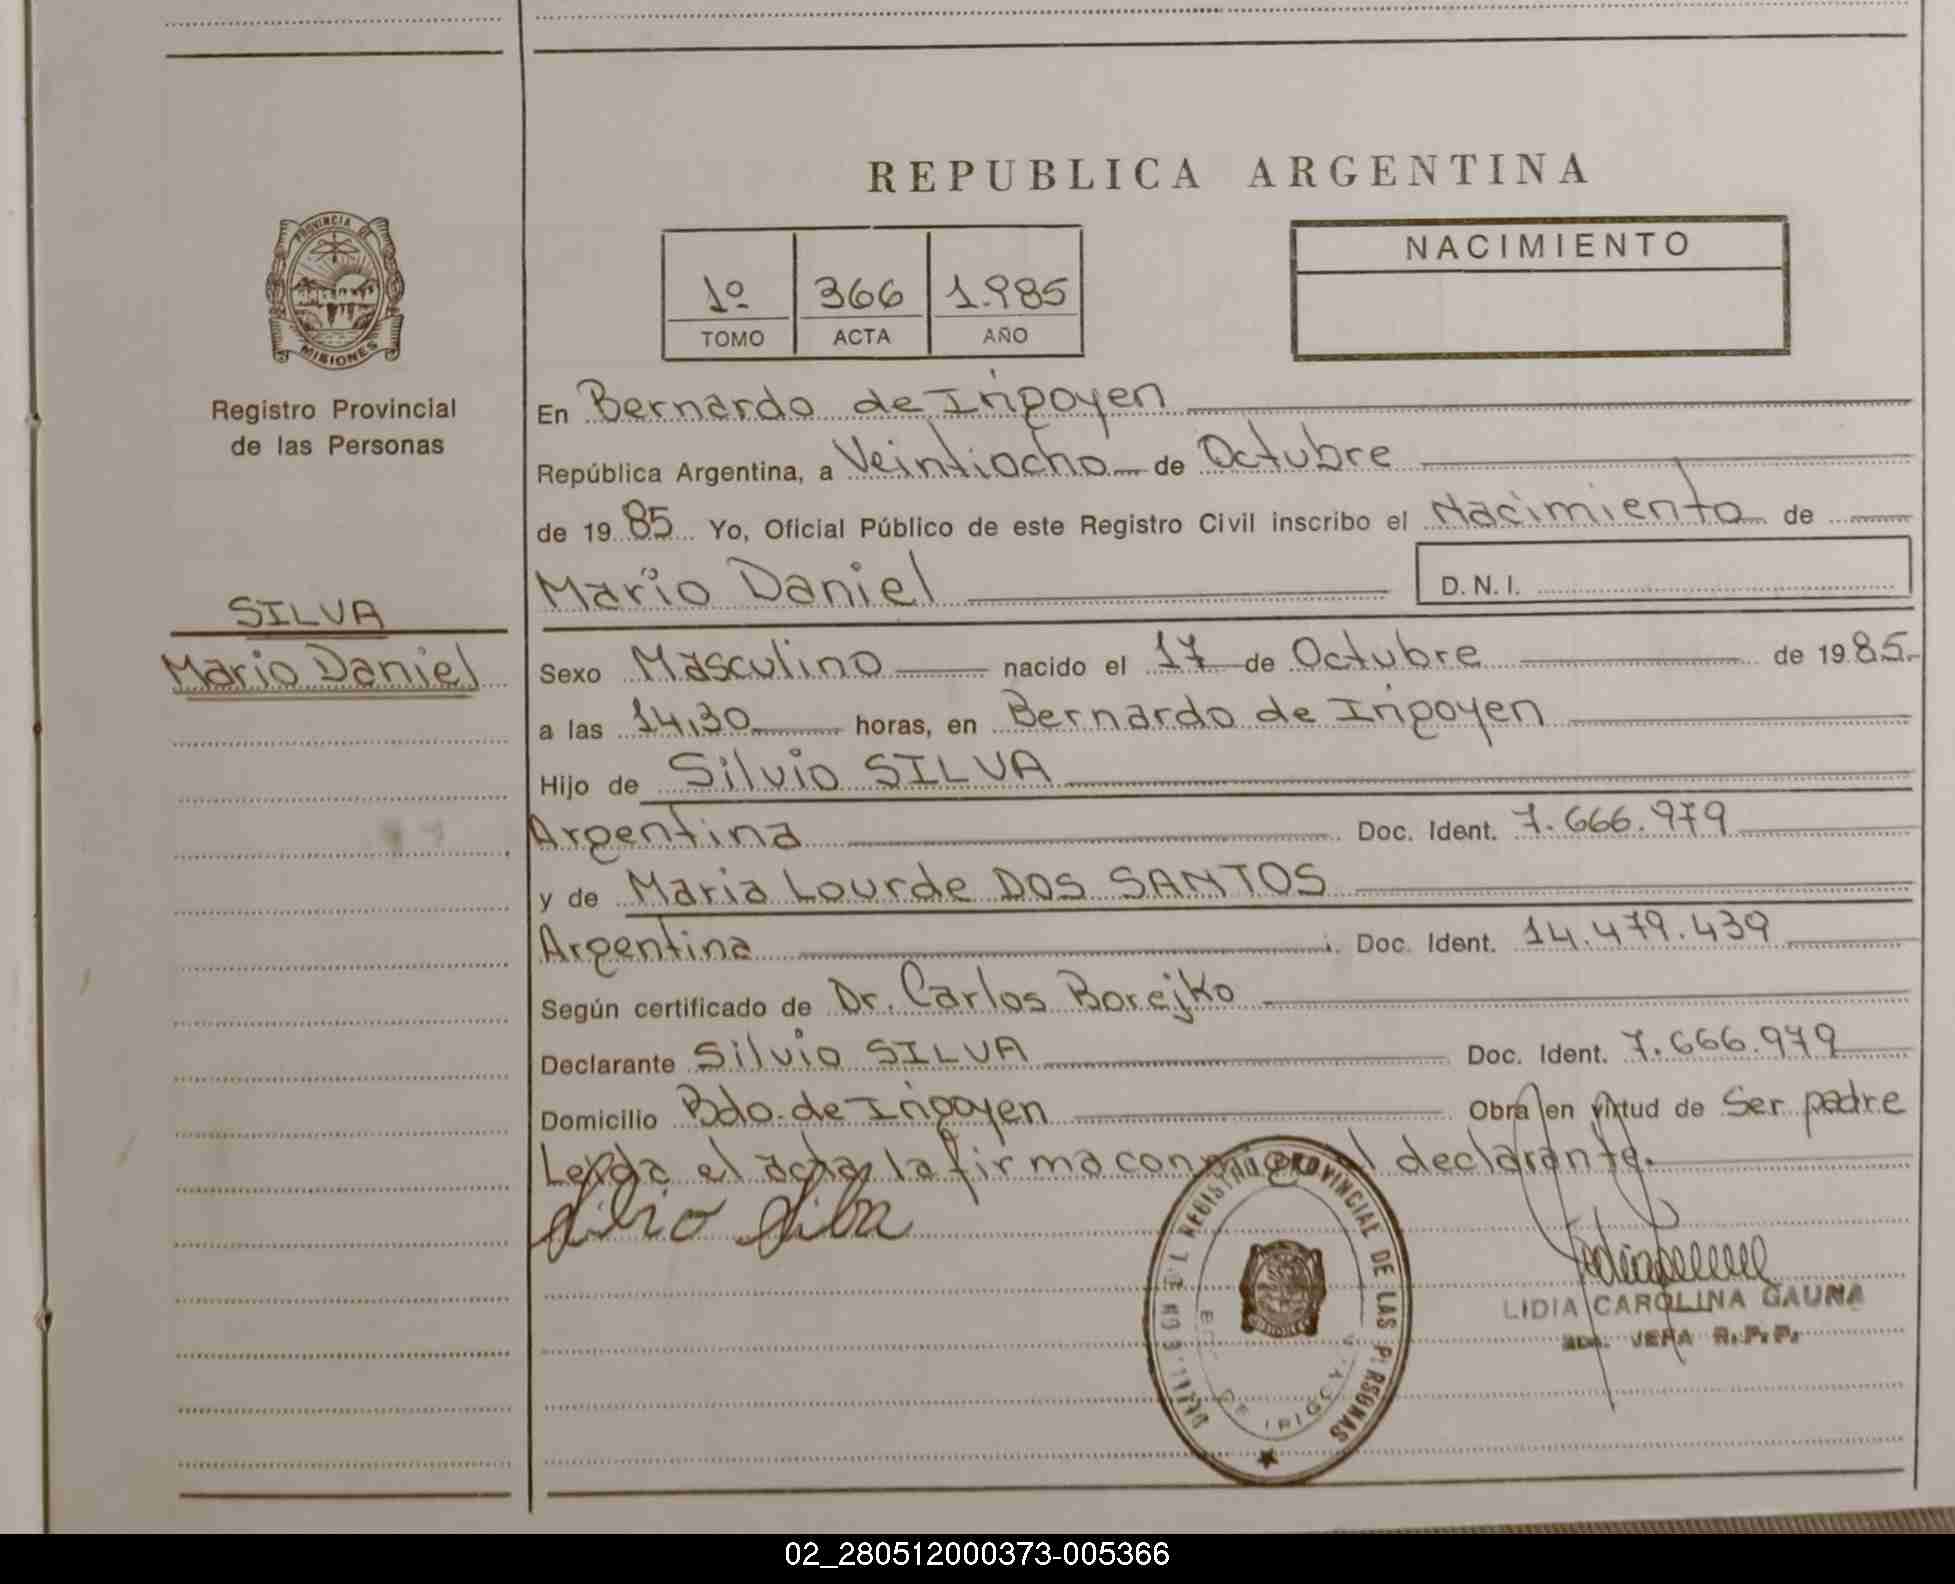 REPUBLICA ARGENTINA
PROVINCIA DE
MISIONES
Registro Provincial
de las Personas
1º 366 1.985
TOMO ACTA AÑO
NACIMIENTO
En Bernardo de Irigoyen
República Argentina, a Veintiocho de Octubre
de 1985 Yo, Oficial Público de este Registro Civil inscribo el Nacimiento de
Mario Daniel D. N. I.
SILVA
Mario Daniel
Sexo Masculino nacido el 17 de Octubre de 1985.
a las 14,30 horas, en Bernardo de Irigoyen
Hijo de Silvio SILVA
Argentina Doc. Ident. 7.666.979
y de Maria Lourde DOS SANTOS
Argentina Doc. Ident. 14.479.439
Según certificado de Dr. Carlos Borejko
Declarante Silvio SILVA Doc. Ident. 7.666.979
Domicilio Bdo. de Irigoyen Obra en virtud de Ser padre
Leída el acta, la firma conmigo el declarante.
REGISTRO PROVINCIAL DE LAS PERSONAS
DE IRIGOYEN
MISIONES
LIDIA CAROLINA GAUNA
JEFA R.P.P.
02_280512000373-005366